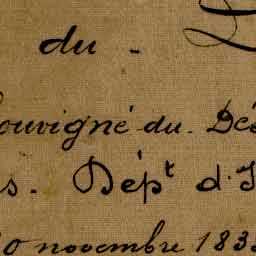 du -
ouvigné du. Dés
s. Dépt d'I
0 novembre 183